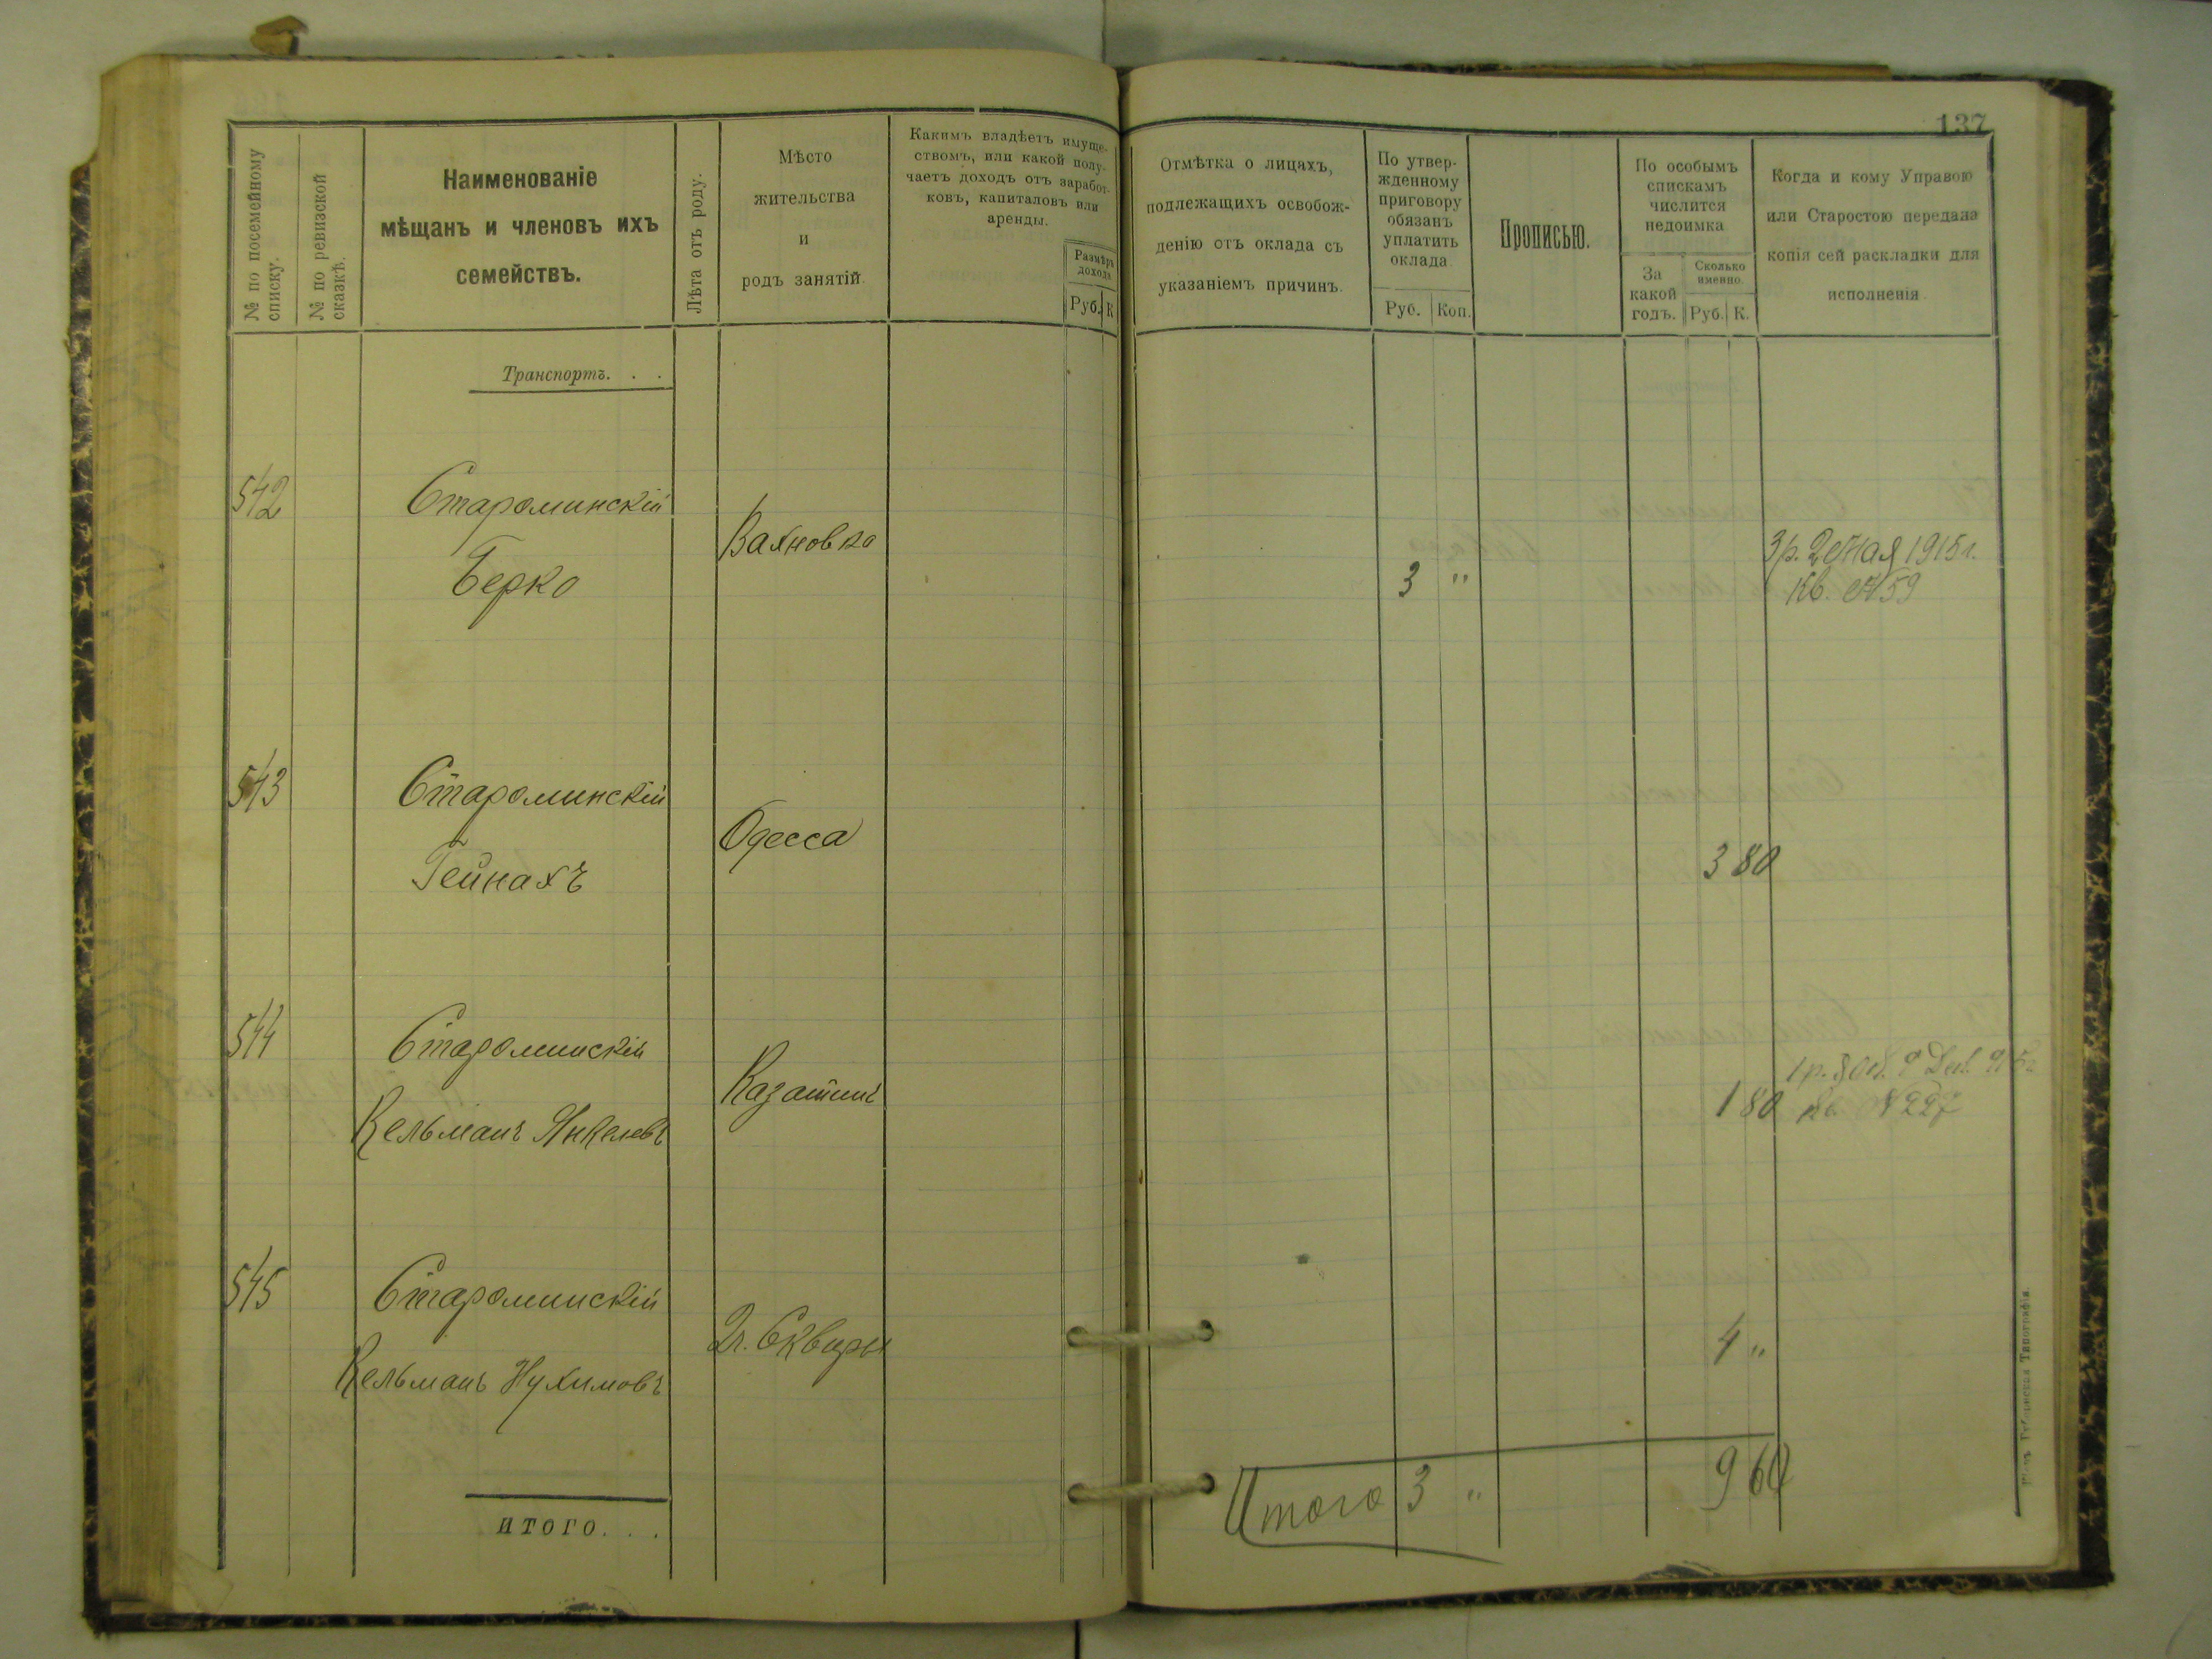 137
№ по посемейному
списку.
№ по ревизской
сказкѣ.
Наименованіе
мѣщанъ и членовъ ихъ
семействъ.
Лѣта отъ роду.
Мѣсто
жительства
и
родъ занятій.
Какимъ владѣетъ имуще-
ствомъ, или какой полу-
чаетъ доходъ отъ заработ-
ковъ, капиталовъ или
аренды.
Размѣръ
дохода
Руб. К
Отмѣтка о лицахъ,
подлежащихъ освобож-
денію отъ оклада съ
указаніемъ причинъ.
По утвер-
жденному
приговору
обязанъ
уплатить
оклада
Руб. Коп.
Прописью.
По особымъ
спискамъ
числится
недоимка
За
какой
годъ.
Сколько
именно.
Руб. К.
Когда и кому Управою
или Старостою передана
копія сей раскладки для
исполненія
Транспортъ. . .
542
Староминскій
Берко
Вахновка
3 "
3 р. 2 Мая 1915 г.
Кв. № 59
543
Староминскій
Гейнахъ
Одесса
3 80
544
Староминскій
Кельманъ Янкелевъ
Казатинъ
1 80
1 р. 80 к. 9
Кв. № 227
545
Староминскій
Кельманъ Нухимовъ
Сквиры
4 "
итого. . .
Итого 3 " 9 60
Губернская Типографія.